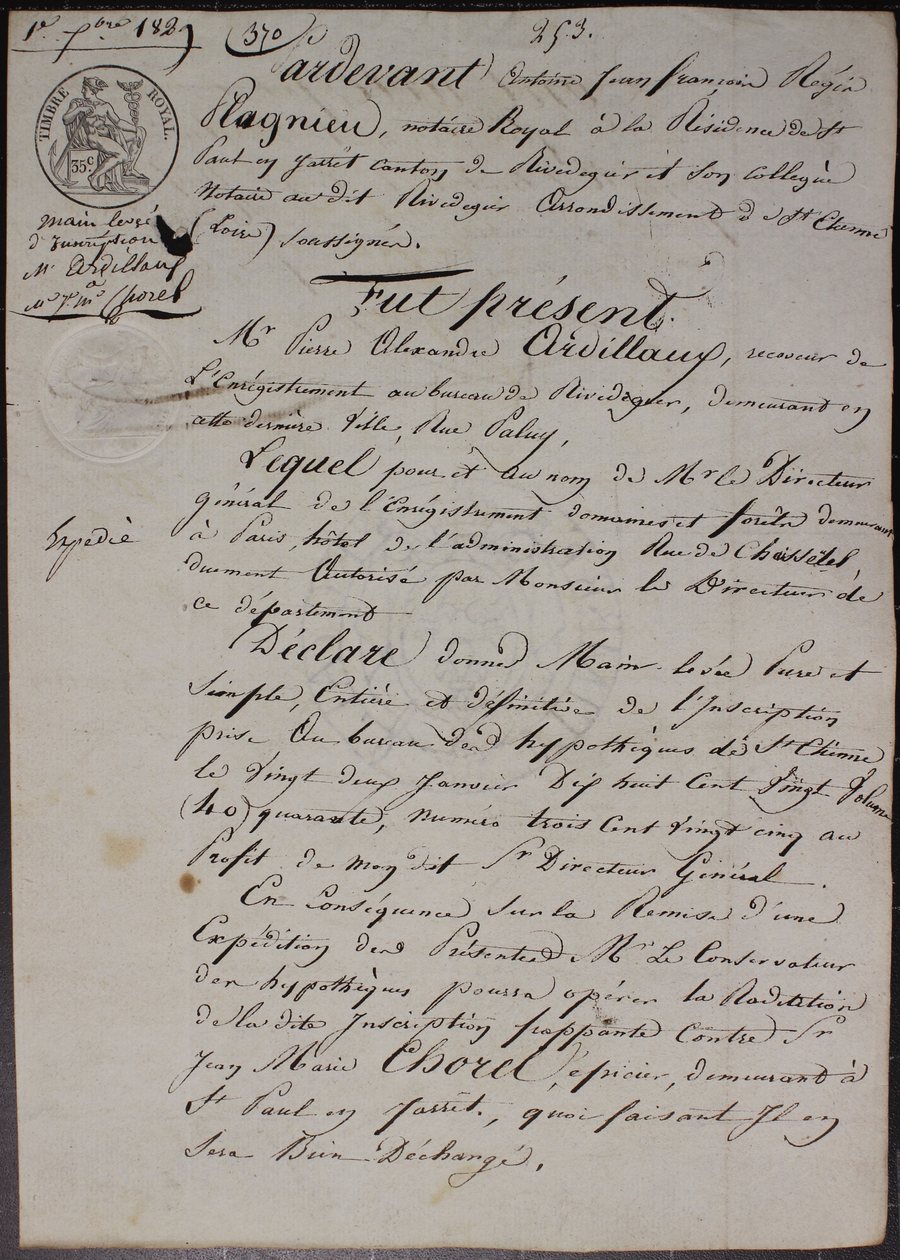 1er 7bre 182
370
253.
TIMBRE ROYAL.
35c.
Main levée
d'Inscription
Mr Ardillaux
a
Me Jn Me Chorel
Expédié
Pardevant Antoine Jean françois Régis
Plagnieu, notaire Royal à la Résidence de St
Paul en Jarrêt Canton de Rivedegier et son collegue
Notaire au dit Rivedegier Arrondissement de St Etienne
(Loire) soussignés.
Fut présent.
Mr Pierre Alexandre Ardillaux, receveur de
L'Enrégistrement au bureau de Rivedegier, demeurant en
cette dernière Ville, Rue Paluy,
Lequel pour et au nom de Mr le Directeur
Général de l'Enrégistrement domaines et forêts demeurant
à Paris, hôtel de l'administration Rue de Choiseüel,
duement Autorisé par Monsieur le Directeur de
ce département
Déclare donner Main-levée Pure et
Simple, Entière et définitive de l'Inscription
prise Au bureau des hypothèques de St Etienne
le Vingt deux Janvier Dix huit Cent Vingt Volume
(40) quarante, numéro trois Cent Vingt cinq au
Profit de mon dit Sr Directeur Général.
En Conséquence sur la Remise d'une
Expédition des Présentes Mr Le Conservateur
des hypothèques pourra opérer la Radiation
de la dite Inscription frappante Contre Sr
Jean Marie Chorel, épicier, demeurant à
St Paul en Jarrêt, quoi faisant Il en
Sera Bien Déchargé.